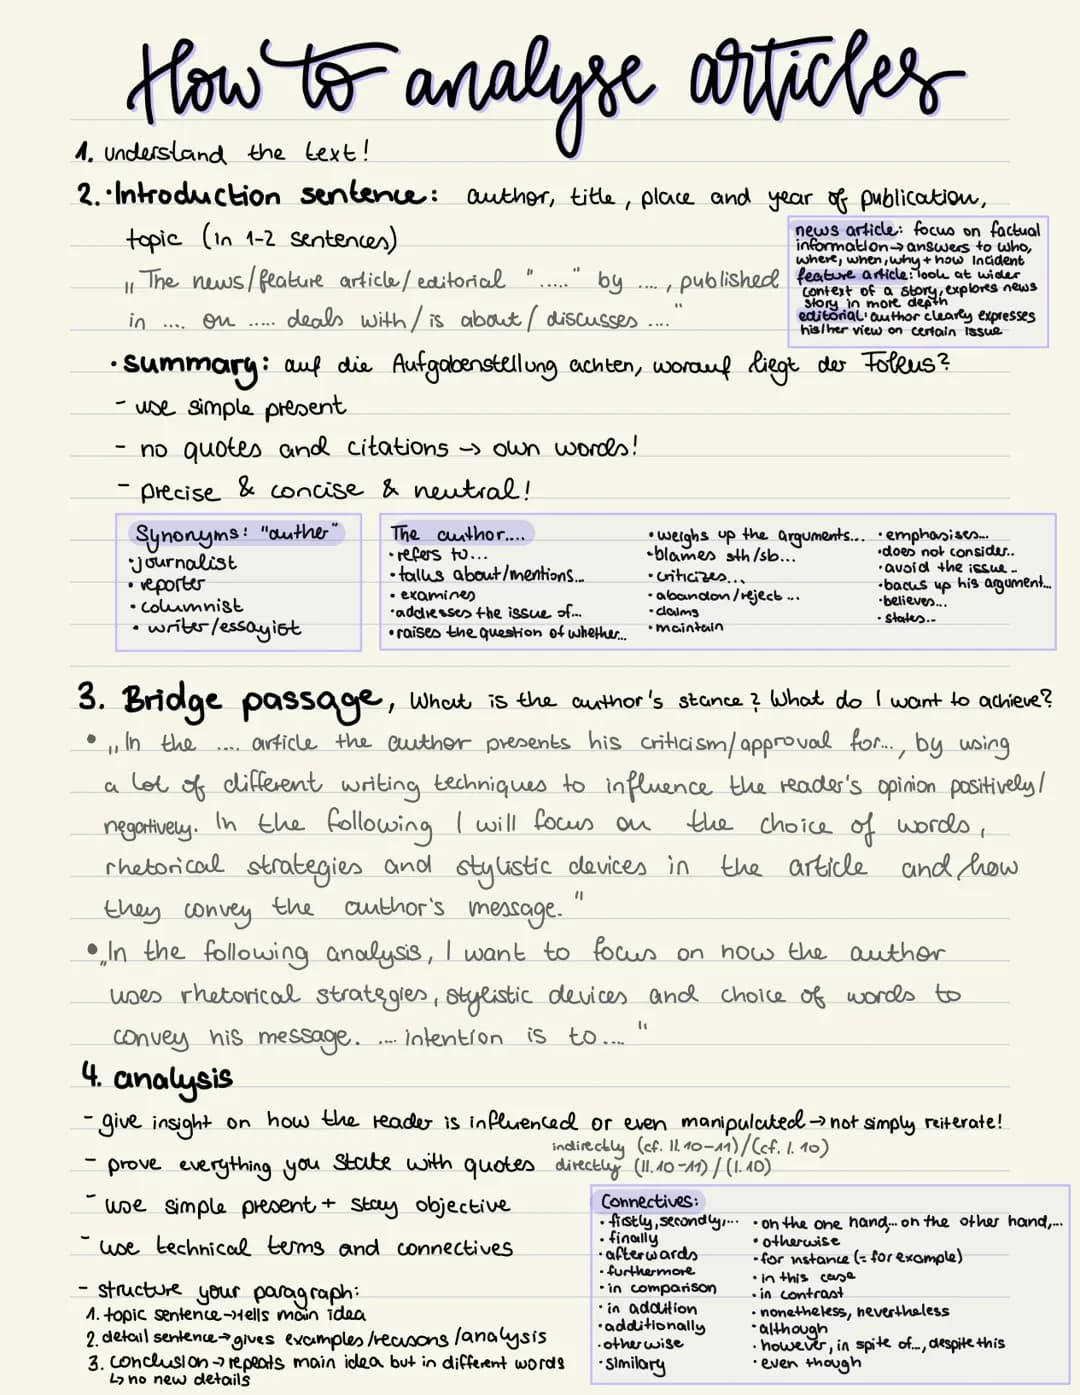 How to analyse articles
1. understand the text!
2. · Introduction sentence: author, title, place and year of publication,
topic (in 1-2 sentences)
„ The news/feature article/editorial "....." by ...., published
in .... on ..... deals with/is about/ discusses ...."
news article: focus on factual
information → answers to who,
where, when, why + how incident
feature article: look at wider
context of a story, explores news
story in more depth
editorial: author clearly expresses
his/her view on certain issue
· summary: auf die Aufgabenstellung achten, worauf liegt der Fokus?
- use simple present
- no quotes and citations → own words!
- precise & concise & neutral!
Synonyms: "auther"
· journalist
· reporter
· columnist
· writer/essayist
The author....
· refers to...
· talks about/mentions...
· examines
· addresses the issue of...
· raises the question of whether...
· weighs up the arguments...
· blames sth/sb...
· criticizes...
· abandon/reject...
· claims
· maintain
· emphasises...
· does not consider..
· avoid the issue..
· backs up his argument...
· believes...
· states..
3. Bridge passage, What is the author's stance? What do I want to achieve?
• „In the .... article the author presents his criticism/approval for..., by using
a lot of different writing techniques to influence the reader's opinion positively/
negatively. In the following I will focus on the choice of words,
rhetorical strategies and stylistic devices in the article and how
they convey the author's message. "
• „In the following analysis, I want to focus on how the author
uses rhetorical strategies, stylistic devices and choice of words to
convey his message. .... intention is to...."
4. analysis
- give insight on how the reader is influenced or even manipulated → not simply reiterate!
- prove everything you state with quotes
indirectly (cf. ll. 10-11)/(cf. l. 10)
directly (ll. 10-11) / (l. 10)
- use simple present + stay objective
- use technical terms and connectives
- structure your paragraph:
1. topic sentence → tells main idea
2. detail sentence → gives examples/reasons/analysis
3. conclusion → repeats main idea but in different words
↳ no new details
Connectives:
· firstly, secondly,...
· finally
· afterwards
· furthermore
· in comparison
· in addition
· additionally
· otherwise
· similary
· on the one hand,... on the other hand,...
· otherwise
· for instance (= for example)
· in this case
· in contrast
· nonetheless, nevertheless
· although
· however, in spite of..., despite this
· even though